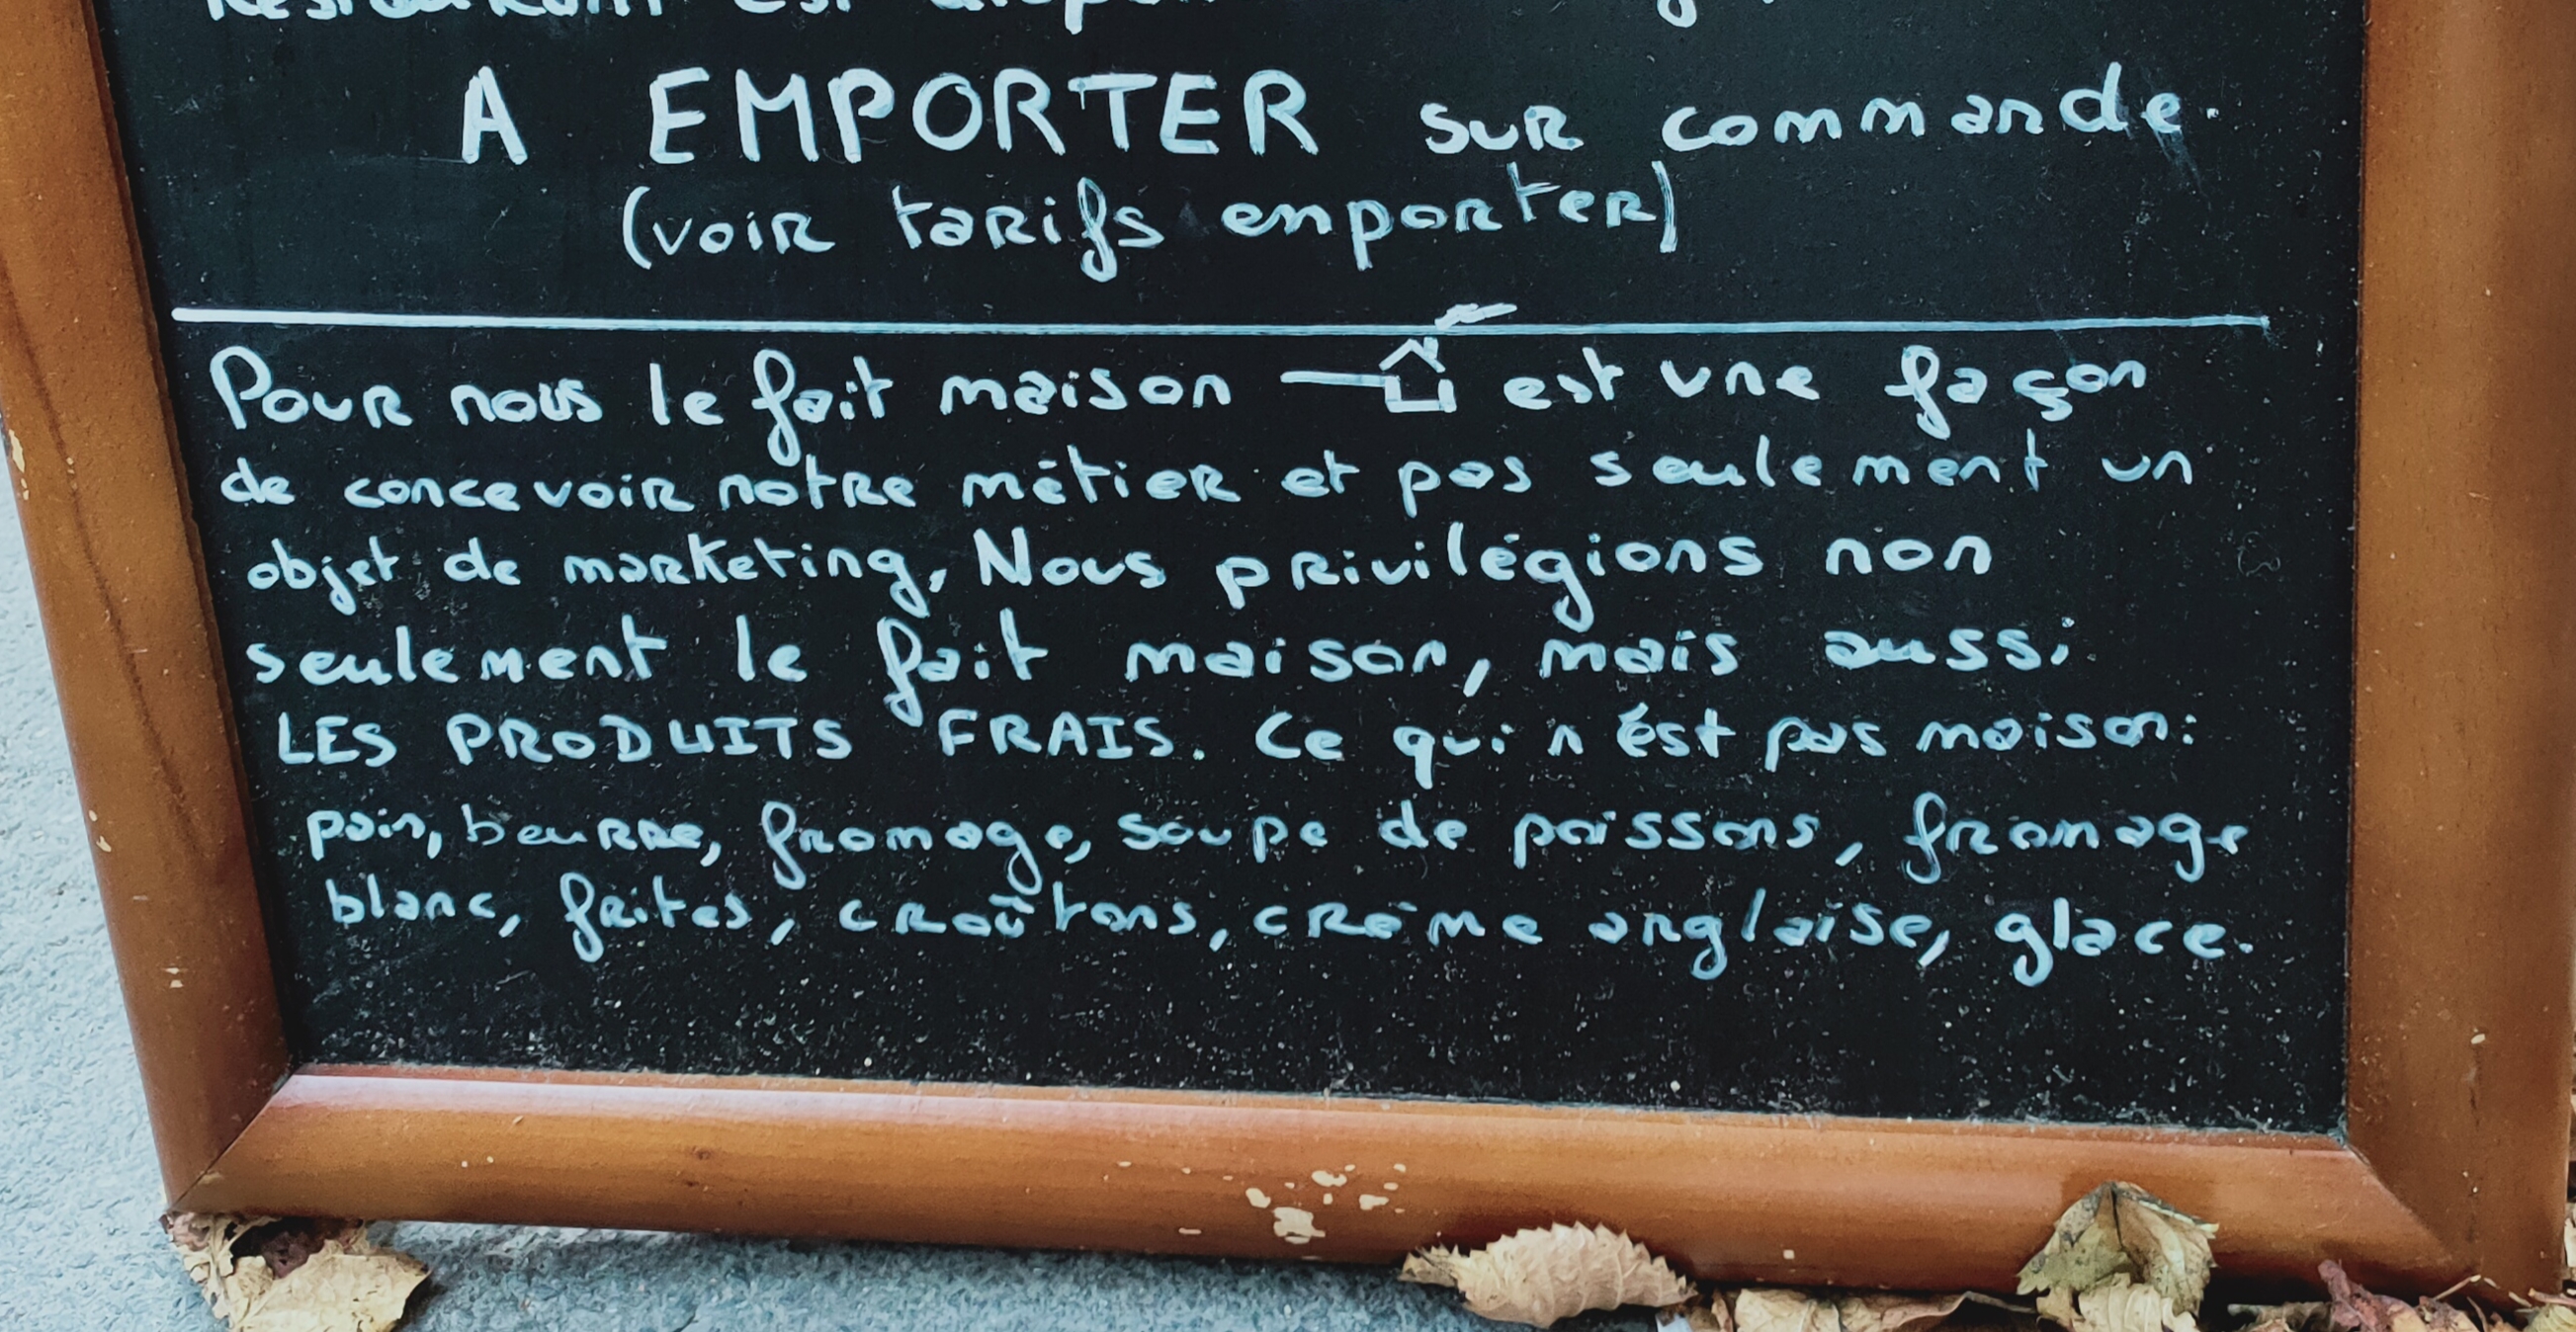 Restaurant est
A EMPORTER sur commande.
(voir tarifs emporter)
Pour nous le fait maison est une façon
de concevoir notre métier et pas seulement un
objet de marketing, Nous privilégions non
seulement le fait maison, mais aussi
LES PRODUITS FRAIS. Ce qui n'est pas maison:
pain, beurre, fromage, soupe de poissons, fromage
blanc, frites, croûtons, crème anglaise, glace.